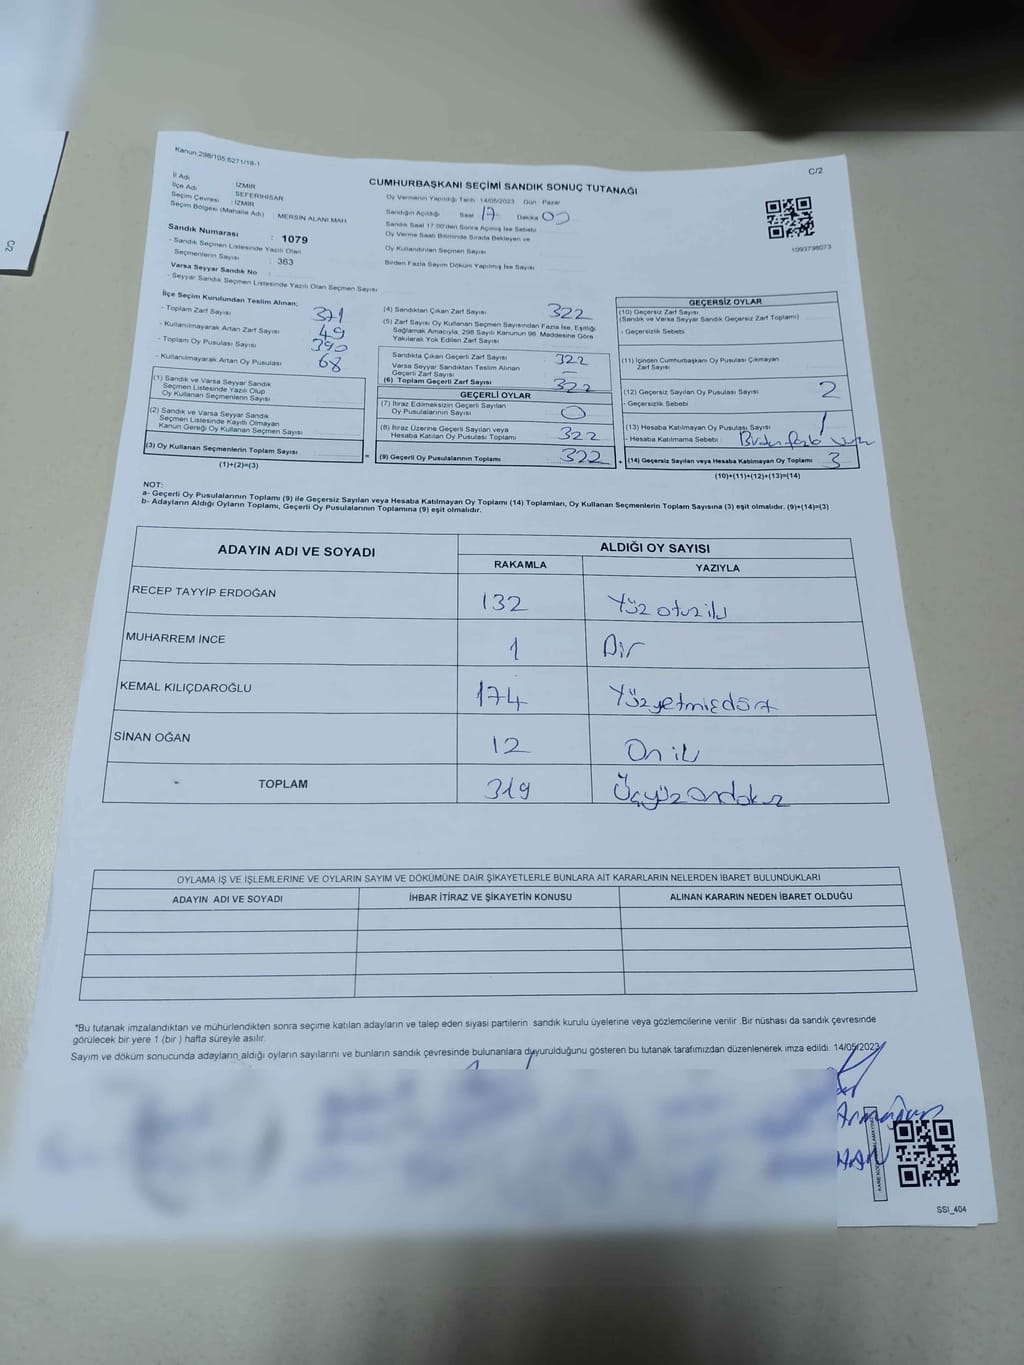 Kanun:298/105,6271/18-1
C/2
CUMHURBAŞKANI SEÇİMİ SANDIK SONUÇ TUTANAĞI
İl Adı : İZMİR
İlçe Adı : SEFERİHİSAR
Seçim Çevresi : İZMİR
Seçim Bölgesi (Mahalle Adı) : MERSİN ALANI MAH.
Oy Vermenin Yapıldığı Tarih : 14/05/2023 Gün : Pazar
Sandığın Açıldığı Saat 17 Dakika 00
Sandık Saat 17:00'den Sonra Açılmış İse Sebebi
Oy Verme Saati Bitiminde Sırada Bekleyen ve
Oy Kullandırılan Seçmen Sayısı
Birden Fazla Sayım Döküm Yapılmış İse Sayısı
1093798073
Sandık Numarası : 1079
- Sandık Seçmen Listesinde Yazılı Olan
Seçmenlerin Sayısı : 363
Varsa Seyyar Sandık No :
- Seyyar Sandık Seçmen Listesinde Yazılı Olan Seçmen Sayısı
İlçe Seçim Kurulundan Teslim Alınan;
- Toplam Zarf Sayısı 371
- Kullanılmayarak Artan Zarf Sayısı 49
- Toplam Oy Pusulası Sayısı 390
- Kullanılmayarak Artan Oy Pusulası 68
(1) Sandık ve Varsa Seyyar Sandık
Seçmen Listesinde Yazılı Olup
Oy Kullanan Seçmenlerin Sayısı
(2) Sandık ve Varsa Seyyar Sandık
Seçmen Listesinde Kayıtlı Olmayan
Kanun Gereği Oy Kullanan Seçmen Sayısı
(3) Oy Kullanan Seçmenlerin Toplam Sayısı
(1)+(2)=(3)
(4) Sandıktan Çıkan Zarf Sayısı 322
(5) Zarf Sayısı Oy Kullanan Seçmen Sayısından Fazla İse, Eşitliği
Sağlamak Amacıyla, 298 Sayılı Kanunun 98. Maddesine Göre
Yakılarak Yok Edilen Zarf Sayısı
Sandıkta Çıkan Geçerli Zarf Sayısı 322
Varsa Seyyar Sandıktan Teslim Alınan
Geçerli Zarf Sayısı -
(6) Toplam Geçerli Zarf Sayısı 322
GEÇERLİ OYLAR
(7) İtiraz Edilmeksizin Geçerli Sayılan
Oy Pusulalarının Sayısı 0
(8) İtiraz Üzerine Geçerli Sayılan veya
Hesaba Katılan Oy Pusulası Toplamı 322
= (9) Geçerli Oy Pusulalarının Toplamı 322
GEÇERSİZ OYLAR
(10) Geçersiz Zarf Sayısı
(Sandık ve Varsa Seyyar Sandık Geçersiz Zarf Toplamı)
- Geçersizlik Sebebi
(11) İçinden Cumhurbaşkanı Oy Pusulası Çıkmayan
Zarf Sayısı
(12) Geçersiz Sayılan Oy Pusulası Sayısı 2
- Geçersizlik Sebebi
(13) Hesaba Katılmayan Oy Pusulası Sayısı 1
- Hesaba Katılmama Sebebi : Birden fazla
+ (14) Geçersiz Sayılan veya Hesaba Katılmayan Oy Toplamı : 3
(10)+(11)+(12)+(13)=(14)
NOT:
a- Geçerli Oy Pusulalarının Toplamı (9) ile Geçersiz Sayılan veya Hesaba Katılmayan Oy Toplamı (14) Toplamları, Oy Kullanan Seçmenlerin Toplam Sayısına (3) eşit olmalıdır. (9)+(14)=(3)
b- Adayların Aldığı Oyların Toplamı, Geçerli Oy Pusulalarının Toplamına (9) eşit olmalıdır.
ADAYIN ADI VE SOYADI ALDIĞI OY SAYISI
RAKAMLA YAZIYLA
RECEP TAYYİP ERDOĞAN 132 Yüz otuz iki
MUHARREM İNCE 1 Bir
KEMAL KILIÇDAROĞLU 174 Yüzyetmişdört
SİNAN OĞAN 12 On iki
TOPLAM 319 Üçyüz ondokuz
OYLAMA İŞ VE İŞLEMLERİNE VE OYLARIN SAYIM VE DÖKÜMÜNE DAİR ŞİKAYETLERLE BUNLARA AİT KARARLARIN NELERDEN İBARET BULUNDUKLARI
ADAYIN ADI VE SOYADI İHBAR İTİRAZ VE ŞİKAYETİN KONUSU ALINAN KARARIN NEDEN İBARET OLDUĞU
*Bu tutanak imzalandıktan ve mühürlendikten sonra seçime katılan adayların ve talep eden siyasi partilerin sandık kurulu üyelerine veya gözlemcilerine verilir .Bir nüshası da sandık çevresinde
görülecek bir yere 1 (bir ) hafta süreyle asılır.
Sayım ve döküm sonucunda adayların aldığı oyların sayılarını ve bunların sandık çevresinde bulunanlara duyurulduğunu gösteren bu tutanak tarafımızdan düzenlenerek imza edildi. 14/05/2023
SSİ_404